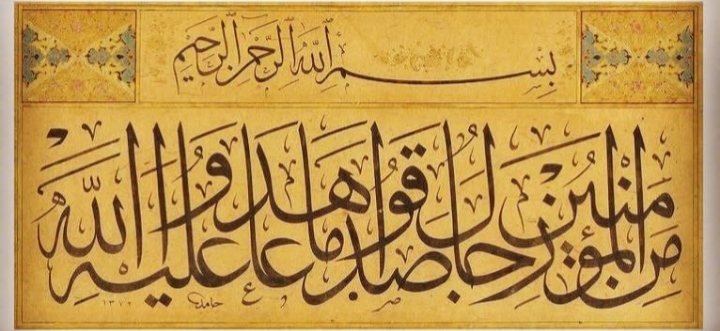 بِسْمِ اللَّهِ الرَّحْمَٰنِ الرَّحِيمِ
مِنَ الْمُؤْمِنِينَ رِجَالٌ صَدَقُوا مَا عَاهَدُوا اللَّهَ عَلَيْهِ
حامد ١٣٧٢